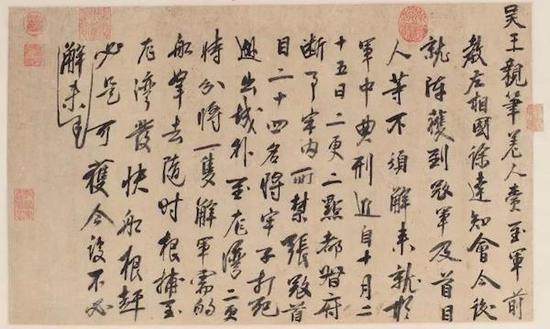 吴王親筆差人賫至軍前
教左相國徐達知會今後
就陣獲到寇軍及首目
人等不須解来就於
軍中典刑近自十月二
十五日二更二點都督府
断了牢内所禁張寇首
目二十四名將牢子打死
越出城外至龍灣二更
時分將一隻解軍需的
船拏去随時根捕至
龍灣發快船根趕
必是可獲今後不必
解来